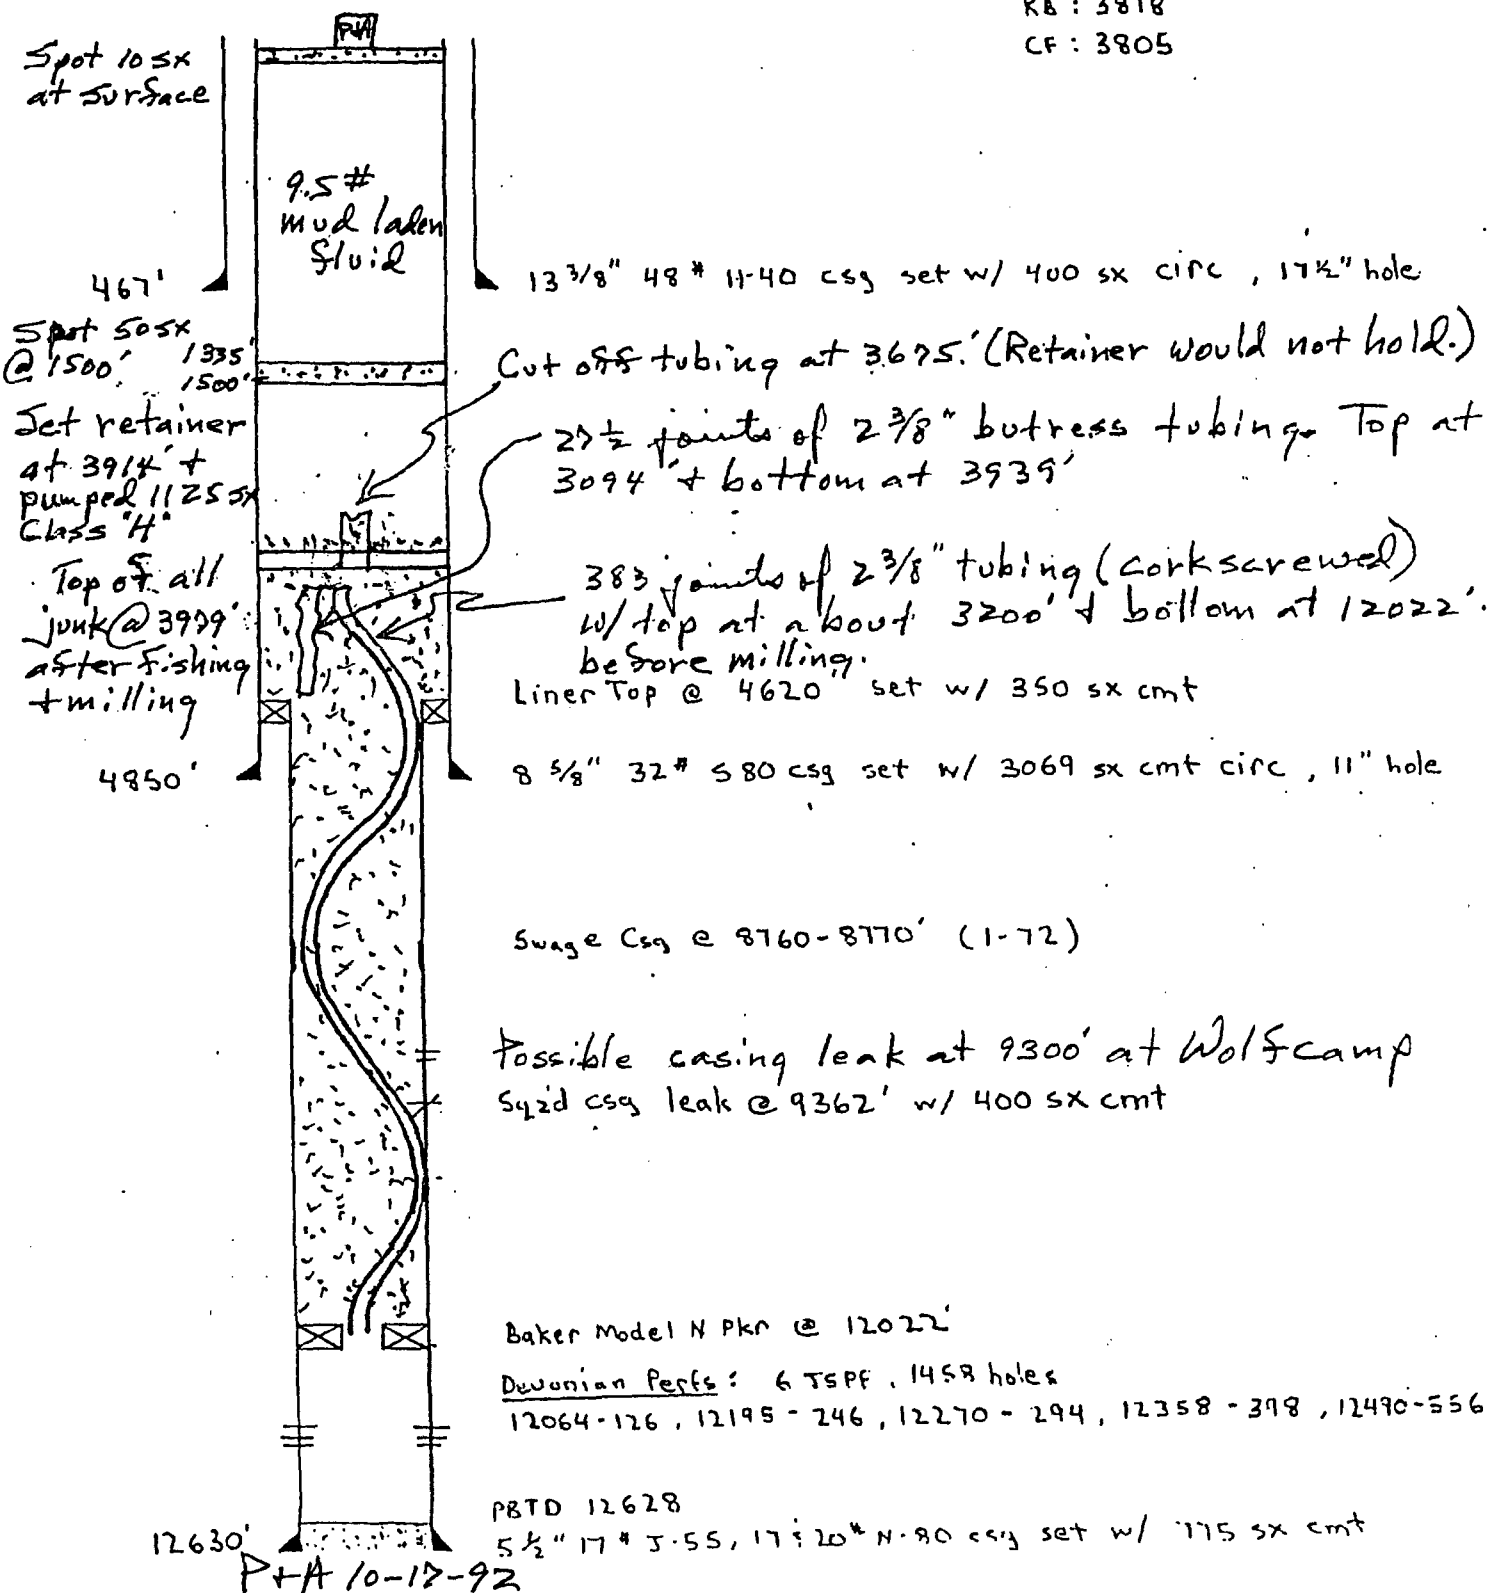 KB : 3818
CF : 3805
P+A
Spot 10 sx
at surface
9.5 #
mud laden
fluid
467'
13 3/8" 48 # H-40 csg set w/ 400 sx circ , 17 1/2" hole
Spot 50 sx
@ 1500'
1335'
1500'
Cut off tubing at 3675.' (Retainer would not hold.)
Set retainer
at 3914' +
pumped 1125 sx
Class "H"
27 1/2 joints of 2 3/8" butress tubing. Top at
3094' + bottom at 3939'
Top of all
junk @ 3979'
after fishing
+ milling
383 joints of 2 3/8" tubing (corkscrewed)
w/ top at about 3200' + bottom at 12022'.
before milling.
Liner Top @ 4620' set w/ 350 sx cmt
4850'
8 5/8" 32 # S80 csg set w/ 3069 sx cmt circ , 11" hole
Swage Csg @ 8760-8770' (1-72)
Possible casing leak at 9300' at Wolfcamp
Sqz'd csg leak @ 9362' w/ 400 sx cmt
Baker Model N Pkr @ 12022'
Devonian Perfs : 6 JSPF , 1458 holes
12064-126 , 12195 - 246 , 12270 - 294 , 12358 - 398 , 12490-556
PBTD 12628
12630'
5 1/2" 17 # J-55, 17 & 20# N-80 csg set w/ 775 sx cmt
P+A 10-17-92